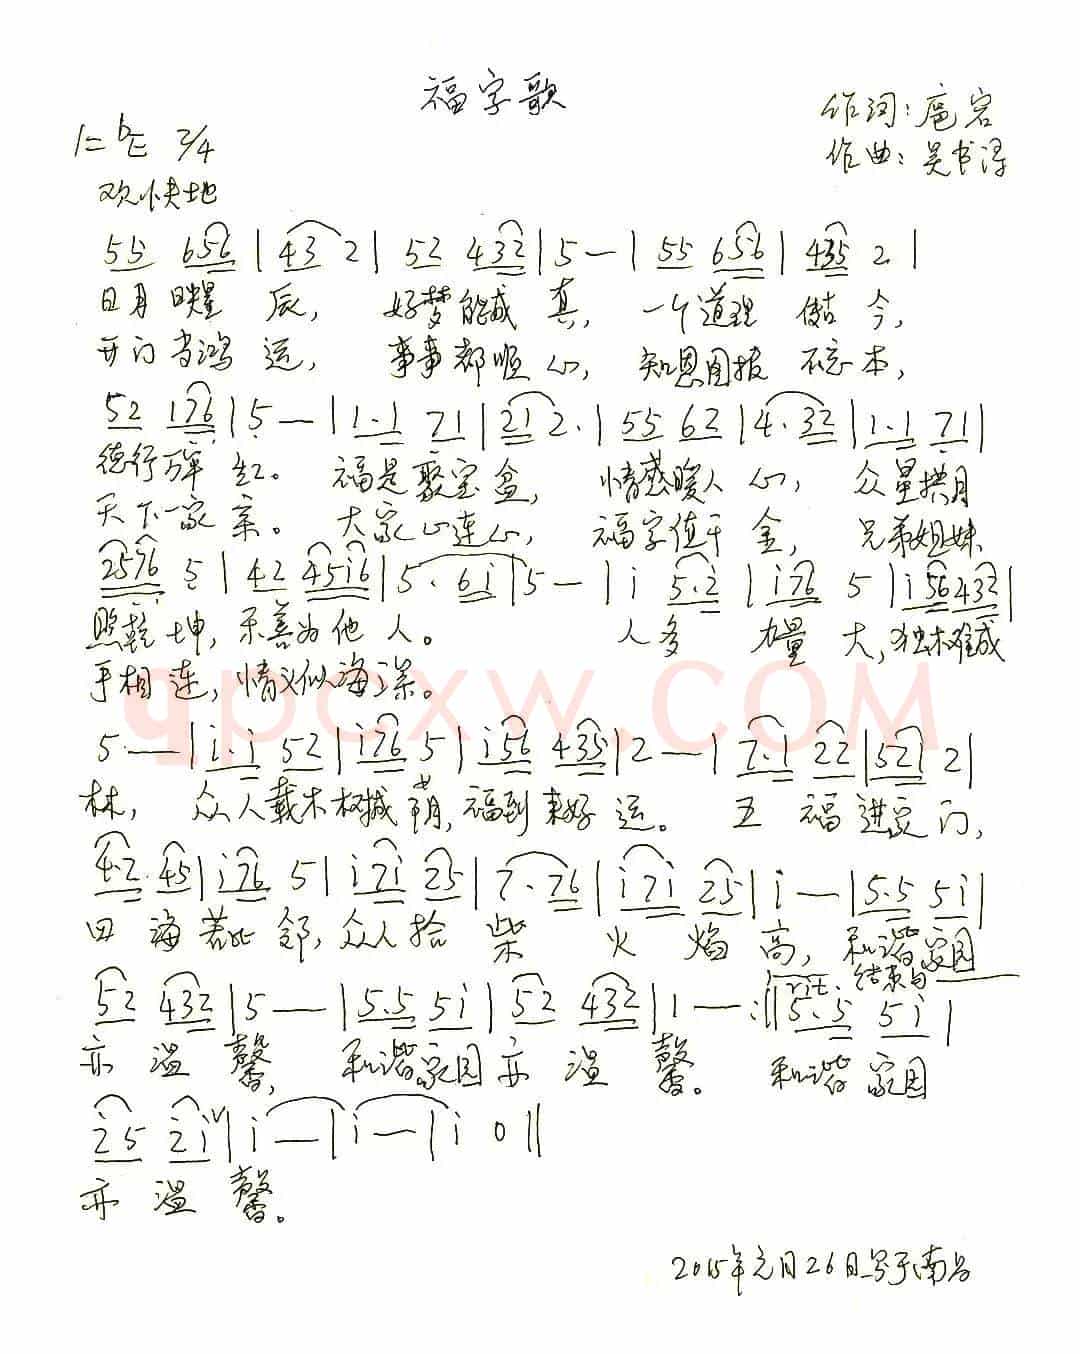 福字歌
作词:扈容
1=bE 2/4
作曲:吴书
欢快地
55 656 | 43 2 | 52 432 | 5 — | 55 656 | 435 2 |
日月星辰, 好梦能成真, 一个道理 今,
开门 鸿运, 事事都顺心, 知恩图报不忘本,
52 176 | 5 — | 1.1 71 | 21 2. | 55 62 | 4.32 | 1.1 71 |
德行 红。 福是聚宝盆, 情感暖人心, 众星拱月
天下一家亲。 大家心连心, 福字值千金, 兄弟姐妹
2576 5 | 42 45i6 | 5. 6i | 5 — | i 5.i | i76 5 | i56432 |
照乾坤, 乐善为他人。 人多力量大, 独木难成
手相连, 情义似海深。
5 — | i.i 52 | i76 5 | i56 435 | 2 — | 7.1 22 | 521 2 |
林, 众人栽木树成荫, 福到来好运。 五福进家门,
4.2 45 | i76 5 | i7i 25 | 7.76 | i7i 25 | i — | 5.5 5i |
四海若比邻, 众人拾柴火焰高, 和谐家园
rit. 结束句
52 432 | 5 — | 5.5 5i | 52 432 | 1 — :|| 5.5 5i |
亦温馨, 和谐家园亦温馨。 和谐家园
i5 2i | i — | i — | i 0 ||
亦温馨。
2015年元月26日写于南昌
qpcxw.COM